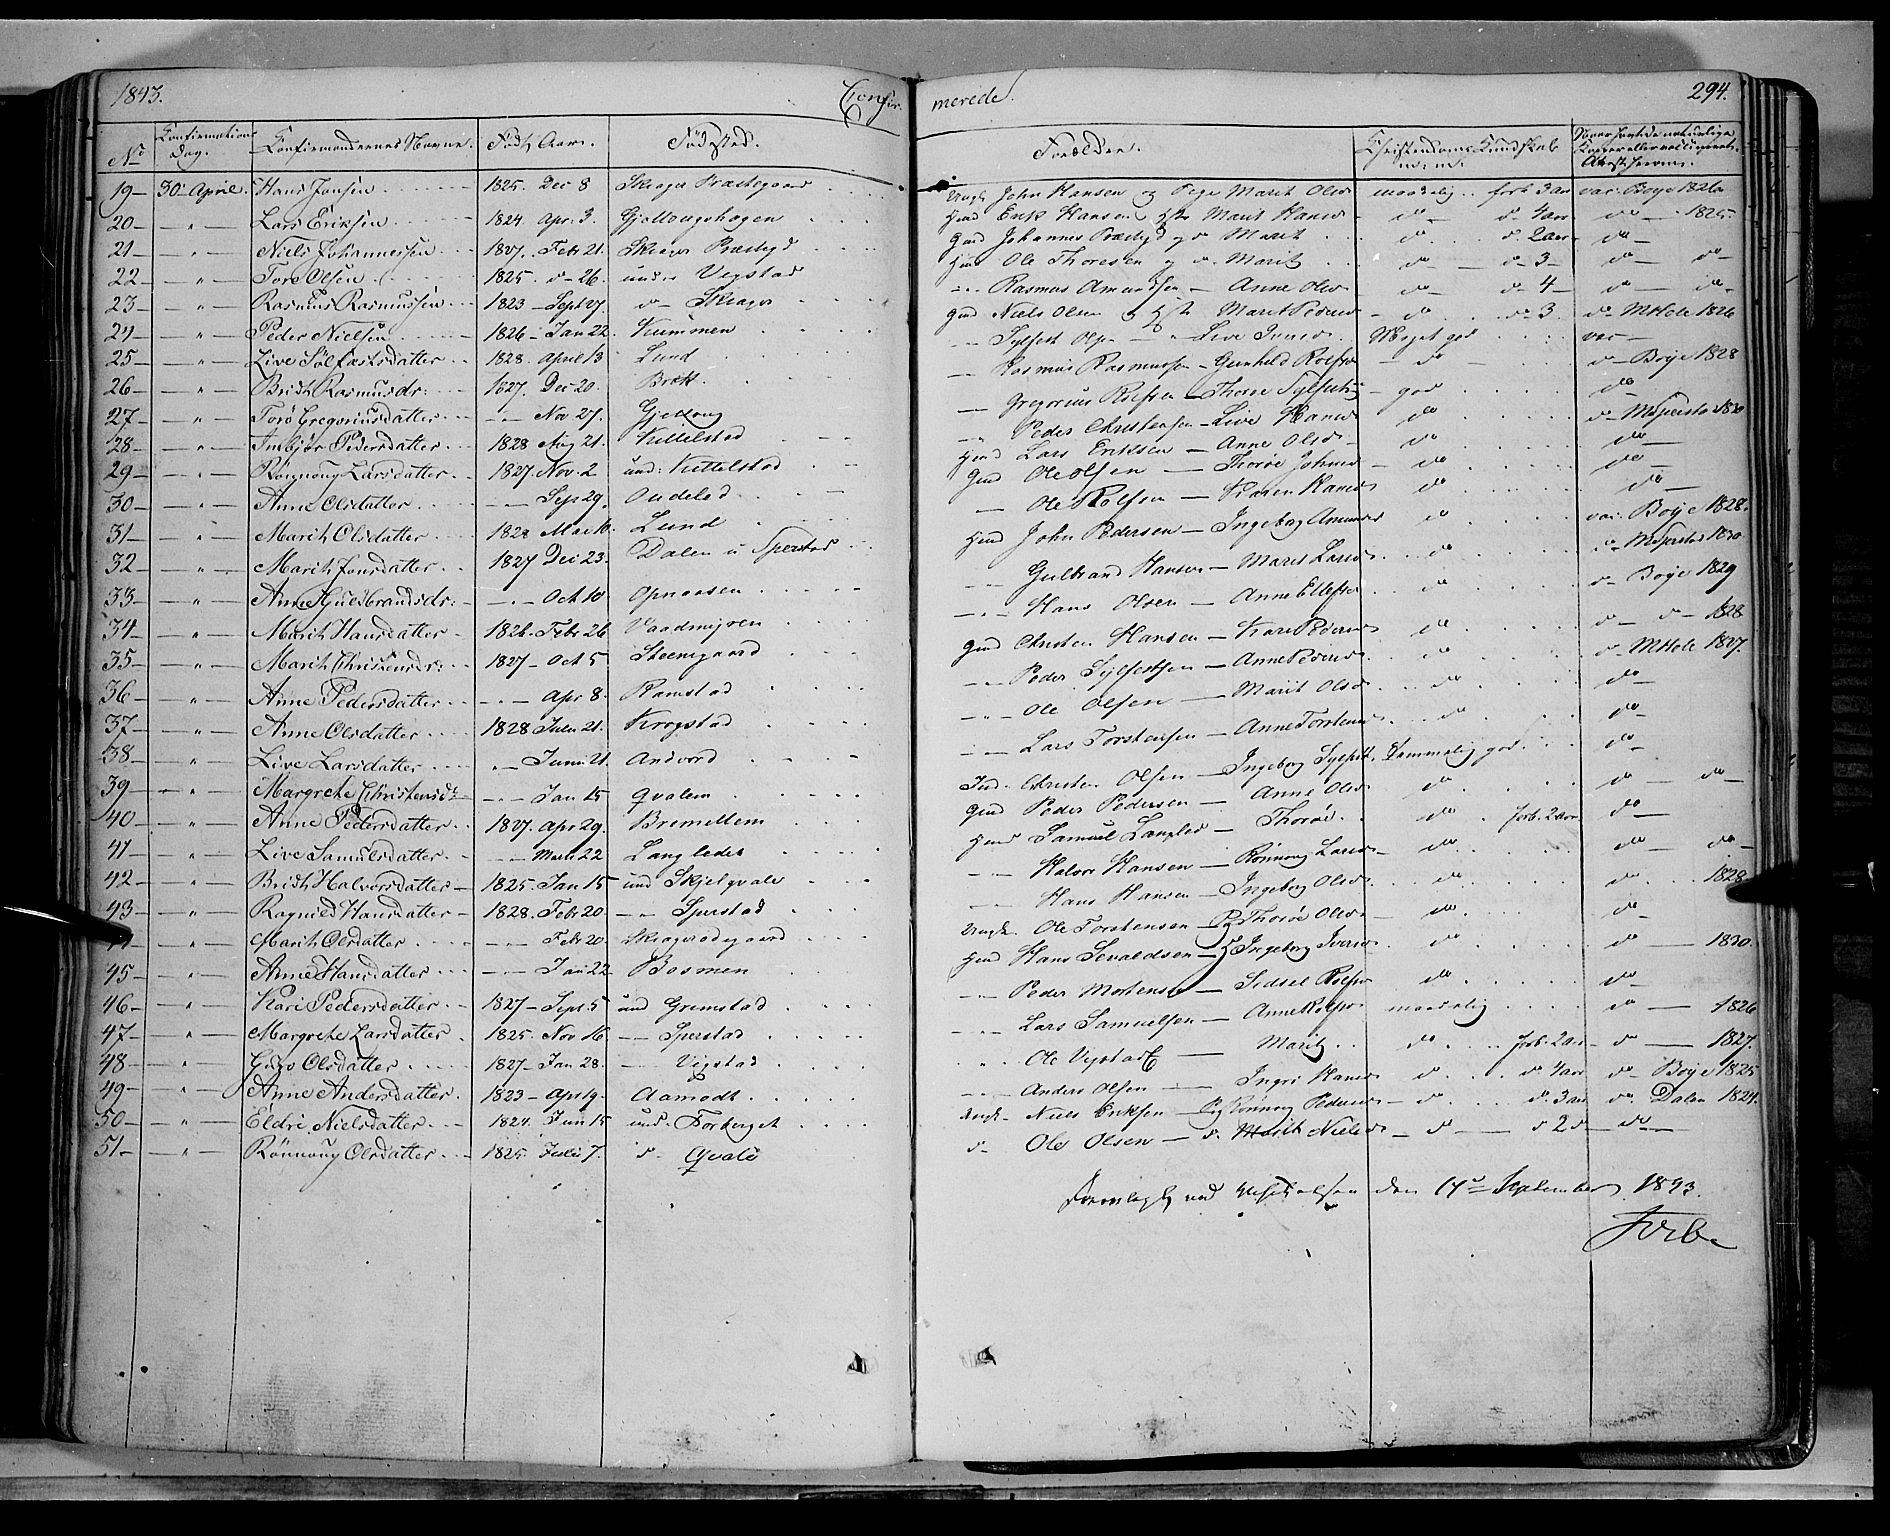 1843. Confir- merede. 294.
No Confirmations Dag. Confirmandernes Navne. Født Aar. Fødsted. Forældre. Christendoms Kundskab m: m: Naar havde naturlige Kopper eller vaccineret. Attest herom.
19 — 30 April. Hans Jonsen 1825. Dec 8 Skeager Præstegaard Ungk John Hansen og Pige Marit Olsd maadelig forb. 3 aar vac: Boye 1826
20 — " — Lars Eriksen 1824 Apr. 3. Gjeilongshagen Hmd Erik Hansen Hst Marit Hansd do — d. 4 aar do — 1825
21 — " — Niels Johannessen 1827. Febr 21. Skeager Præstgd Gmd Johannes Præstgd og do Marit do d. 2 aar do —
22 — " — Tore Olsen 1825. d — 26. under Vigstad Hmd Ole Thoresen og do Marit do — d — 3 — do — do —
23 — " — Rasmus Rasmussen 1823 — Sept 27. d — Skeager — " — Rasmus Amundsen — Anne Olsd do — d — 4 do — do —
24 — " — Peder Nielsen 1826 — Jan 22. Kummen Gmd Niels Olsen og Hst Marit Pedersd — do — d. 3. d. MHole 1826
25 — " — Live Sølfæstsdatter 1828. April 13 Lund — " — Sylfest Olsen — Live Iversd Meget god vac —
26 — " — Brith Rasmusdr: 1827. Dec 20. Brek — Rasmus Rasmussen — Gunhild Rolfsd — do — d — Boye 1828
27 " Toro Gregoriusdatter — " — Nov 27. Gjeilong — Gregorius Rolfsen — Thorøe Sylfestd — god do
28 — " — Imbjør Pedersdatter 1828 Aug 21. Kittelstad — " Peder Christensen — Live Hansd do d — MSperstad 1830
29 — " — Rønnoug Larsdatter 1827. Nov. 2 und: Kittelstad Hmd Lars Eriksen — Anne Olsd — do do —
30 — " — Anne Olsdatter — " — Sept 29. Gmd Ole Olsen — Thorøe Johnsd — do do —
31 — " — Marith Olsdatter 1828 Mai 10. Lund — Ole Rolfsen — Karen Hansd do do —
32 — " — Marith Jonsdatter 1827 Dec 23. Dalen u Sperstad Hmd John Pedersen — Ingeborg Amundsd do vac: Boye 1828.
33 — " — Anne Gulbrandsdr: — " — Oct 10 Opnaasen — " — Gulbrand Hansen — Marit Larsd do d — MSperstad 1830
34 — " — Marith Hansdatter 1826. Febr 26 Vaadmyren — " — Hans Olsen — Anne Ellefsd do d — Boye 1829
35 — " — Marith Christensdr: 1827 — Oct 5 Steensgaard Gmd Christen Hansen — Kari Pedersd do d — d — 1828
36 — " — Anne Pedersdatter — " — Apr 8. Ramstad — " — Peder Sylfestsen — Anne Pedersd do d — MHole 1827.
37 — " — Anne Olsdatter 1828 Juli 21. Krogstad — " — Ole Olsen — Marit Olsd do do —
38 — " — Live Larsdatter " — Juni 21. Andvord — " — Lars Torstensen — Anne Torstensd do do
39 — " — Margrete Christensdr — " — Jan 15 Qvalem Ind. Christen Olsen — Ingeborg Sylfestd Temmelig god do —
40 — " — Anne Pedersdatter 1827. Apr 29. Bremellem Gmd Peder Pedersen — Anne Olsd do do — do —
41 — " — Live Samulsdatter — " — Marts 22 Langledet Hmd Samuel Langled — Thorøe do forb. 2 aar do —
42 — " — Brith Halvorsdatter 1825 — Jan 15 und Skjelqvale — " — Halvor Hansen — Rønnoug Larsd — do do — do —
43 — " — Ragnild Hansdatter 1828. Febr 20. — " — Sperstad — " — Hans Hansen — Ingeborg Olsd do do 1828
" — Marith Olsdatter — " — Febr 20. Ungk. Ole Torstensen — Pg Thorøe Olsd do do
45 — " — Anne Hansdatter — " — Jan 22 Bosmen Hmd Hans Sevaldsen — H Ingeborg Iversd do do — 1830.
46 — " — Kari Pedersdatter 1827 — Sept. 5 und Gremstad — " — Peder Mortensen — Sidsel Rolfsd do do —
47 — " — Margrete Larsdatter 1825. Nov 16 — " — Sperstad — " — Lars Samuelsen — Anne Rolfsd maadelig do — 1826
48 — " — Guro Olsdatter 1827 — Jan 28. — " — Vigstad " Ole Vigstad — Marit do forb. 2 aar — d — 1827.
49 — " — Anne Andersdatter. 1823 — Apr 9. Aamodt — " — Anders Olsen — Ingri Hansd d d 4 aar do — Boye 1825
50 — " — Eldri Nielsdatter 1824. Juni 15 und. Forberget Ungk — Niels Eriksen — Pg Rønnoug Pedersd — d d. 3 aar do. Dalen 1824.
51 — " — Rønnoug Olsdatter 1825. Juli 7. d — Qvale d — Ole Olsen — d. Marit Nielsd — d — d 2 d — do —
Fremlagt ved Visitatsen den 14de September 1843.